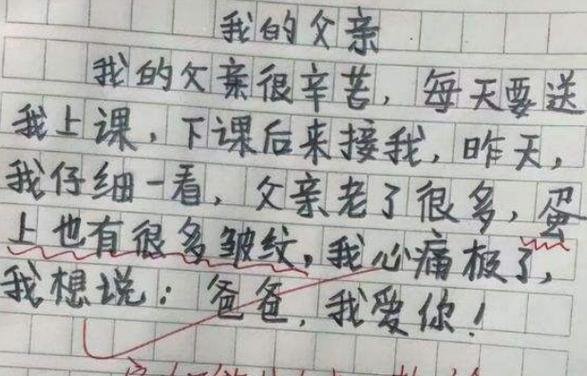 我的父亲
我的父亲很辛苦，每天要送
我上课，下课后来接我，昨天，
我仔细一看，父亲老了很多，蛋
上也有很多皱纹，我心痛极了，
我想说：爸爸，我爱你！